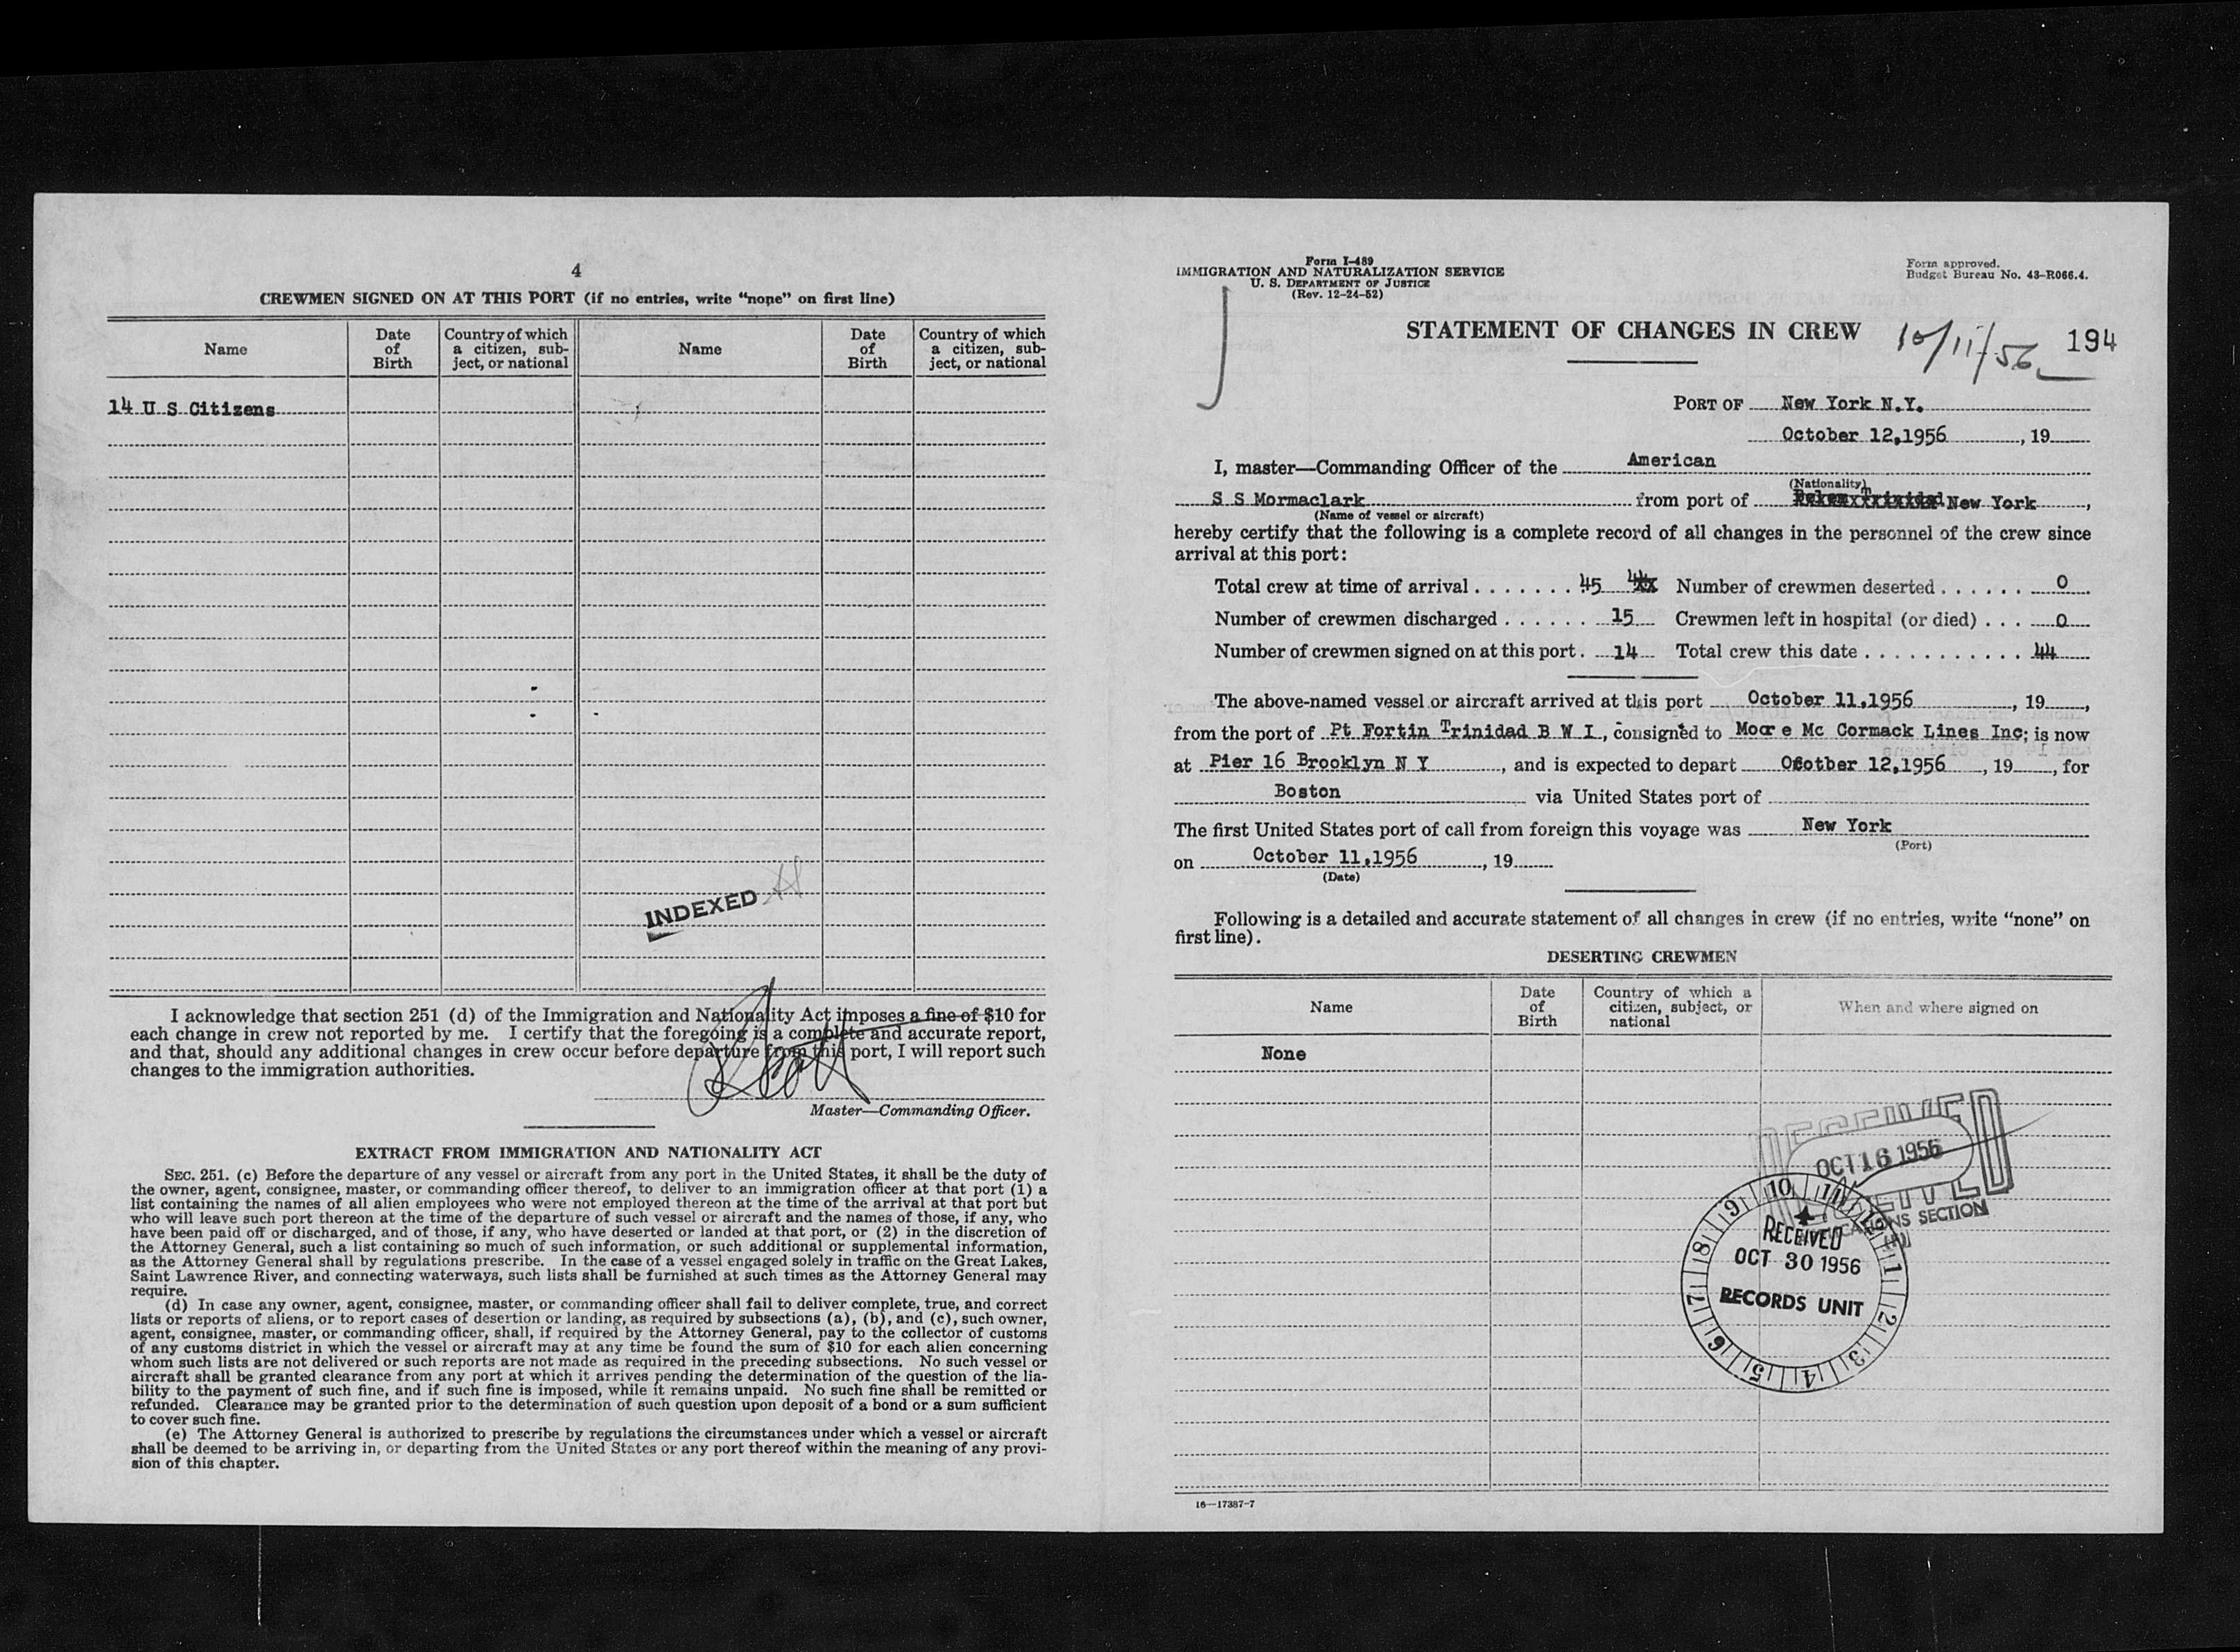 4
CREWMEN SIGNED ON AT THIS PORT (if no entries, write “none” on first line)
Name Date of Birth Country of which a citizen, sub-ject, or national Name Date of Birth Country of which a citizen, sub-ject, or national
14 U S Citizens
INDEXED
I acknowledge that section 251 (d) of the Immigration and Nationality Act imposes a fine of $10 for
each change in crew not reported by me. I certify that the foregoing is a complete and accurate report,
and that, should any additional changes in crew occur before departure from this port, I will report such
changes to the immigration authorities.
Master—Commanding Officer.
EXTRACT FROM IMMIGRATION AND NATIONALITY ACT
SEC. 251. (c) Before the departure of any vessel or aircraft from any port in the United States, it shall be the duty of
the owner, agent, consignee, master, or commanding officer thereof, to deliver to an immigration officer at that port (1) a
list containing the names of all alien employees who were not employed thereon at the time of the arrival at that port but
who will leave such port thereon at the time of the departure of such vessel or aircraft and the names of those, if any, who
have been paid off or discharged, and of those, if any, who have deserted or landed at that port, or (2) in the discretion of
the Attorney General, such a list containing so much of such information, or such additional or supplemental information,
as the Attorney General shall by regulations prescribe. In the case of a vessel engaged solely in traffic on the Great Lakes,
Saint Lawrence River, and connecting waterways, such lists shall be furnished at such times as the Attorney General may
require.
(d) In case any owner, agent, consignee, master, or commanding officer shall fail to deliver complete, true, and correct
lists or reports of aliens, or to report cases of desertion or landing, as required by subsections (a), (b), and (c), such owner,
agent, consignee, master, or commanding officer, shall, if required by the Attorney General, pay to the collector of customs
of any customs district in which the vessel or aircraft may at any time be found the sum of $10 for each alien concerning
whom such lists are not delivered or such reports are not made as required in the preceding subsections. No such vessel or
aircraft shall be granted clearance from any port at which it arrives pending the determination of the question of the lia-
bility to the payment of such fine, and if such fine is imposed, while it remains unpaid. No such fine shall be remitted or
refunded. Clearance may be granted prior to the determination of such question upon deposit of a bond or a sum sufficient
to cover such fine.
(e) The Attorney General is authorized to prescribe by regulations the circumstances under which a vessel or aircraft
shall be deemed to be arriving in, or departing from the United States or any port thereof within the meaning of any provi-
sion of this chapter.
Form I-489
IMMIGRATION AND NATURALIZATION SERVICE
U. S. DEPARTMENT OF JUSTICE
(Rev. 12-24-52)
Form approved.
Budget Bureau No. 43-R066.4.
STATEMENT OF CHANGES IN CREW 10/11/56 194
PORT OF New York N.Y.
October 12,1956 , 19
I, master—Commanding Officer of the American
(Nationality)
S S Mormaclark from port of New York ,
(Name of vessel or aircraft)
hereby certify that the following is a complete record of all changes in the personnel of the crew since
arrival at this port:
Total crew at time of arrival . . . . . . . 45 Number of crewmen deserted . . . . . . 0
Number of crewmen discharged . . . . . . 15 Crewmen left in hospital (or died) . . . 0
Number of crewmen signed on at this port . 14 Total crew this date . . . . . . . . . . . 44
The above-named vessel or aircraft arrived at this port October 11,1956 , 19 ,
from the port of Pt Fortin Trinidad B W I , consigned to Moor e Mc Cormack Lines Inc; is now
at Pier 16 Brooklyn N Y , and is expected to depart Ofotber 12,1956 , 19 , for
Boston via United States port of
The first United States port of call from foreign this voyage was New York
(Port)
on October 11,1956 , 19
(Date)
Following is a detailed and accurate statement of all changes in crew (if no entries, write “none” on
first line).
DESERTING CREWMEN
Name Date of Birth Country of which a citizen, subject, or national When and where signed on
None
RECEIVED
OCT 16 1956
SECTION
9 10 11 12 1 2 3 4 5 6 7 8
RECEIVED
OCT 30 1956
RECORDS UNIT
16—17387-7